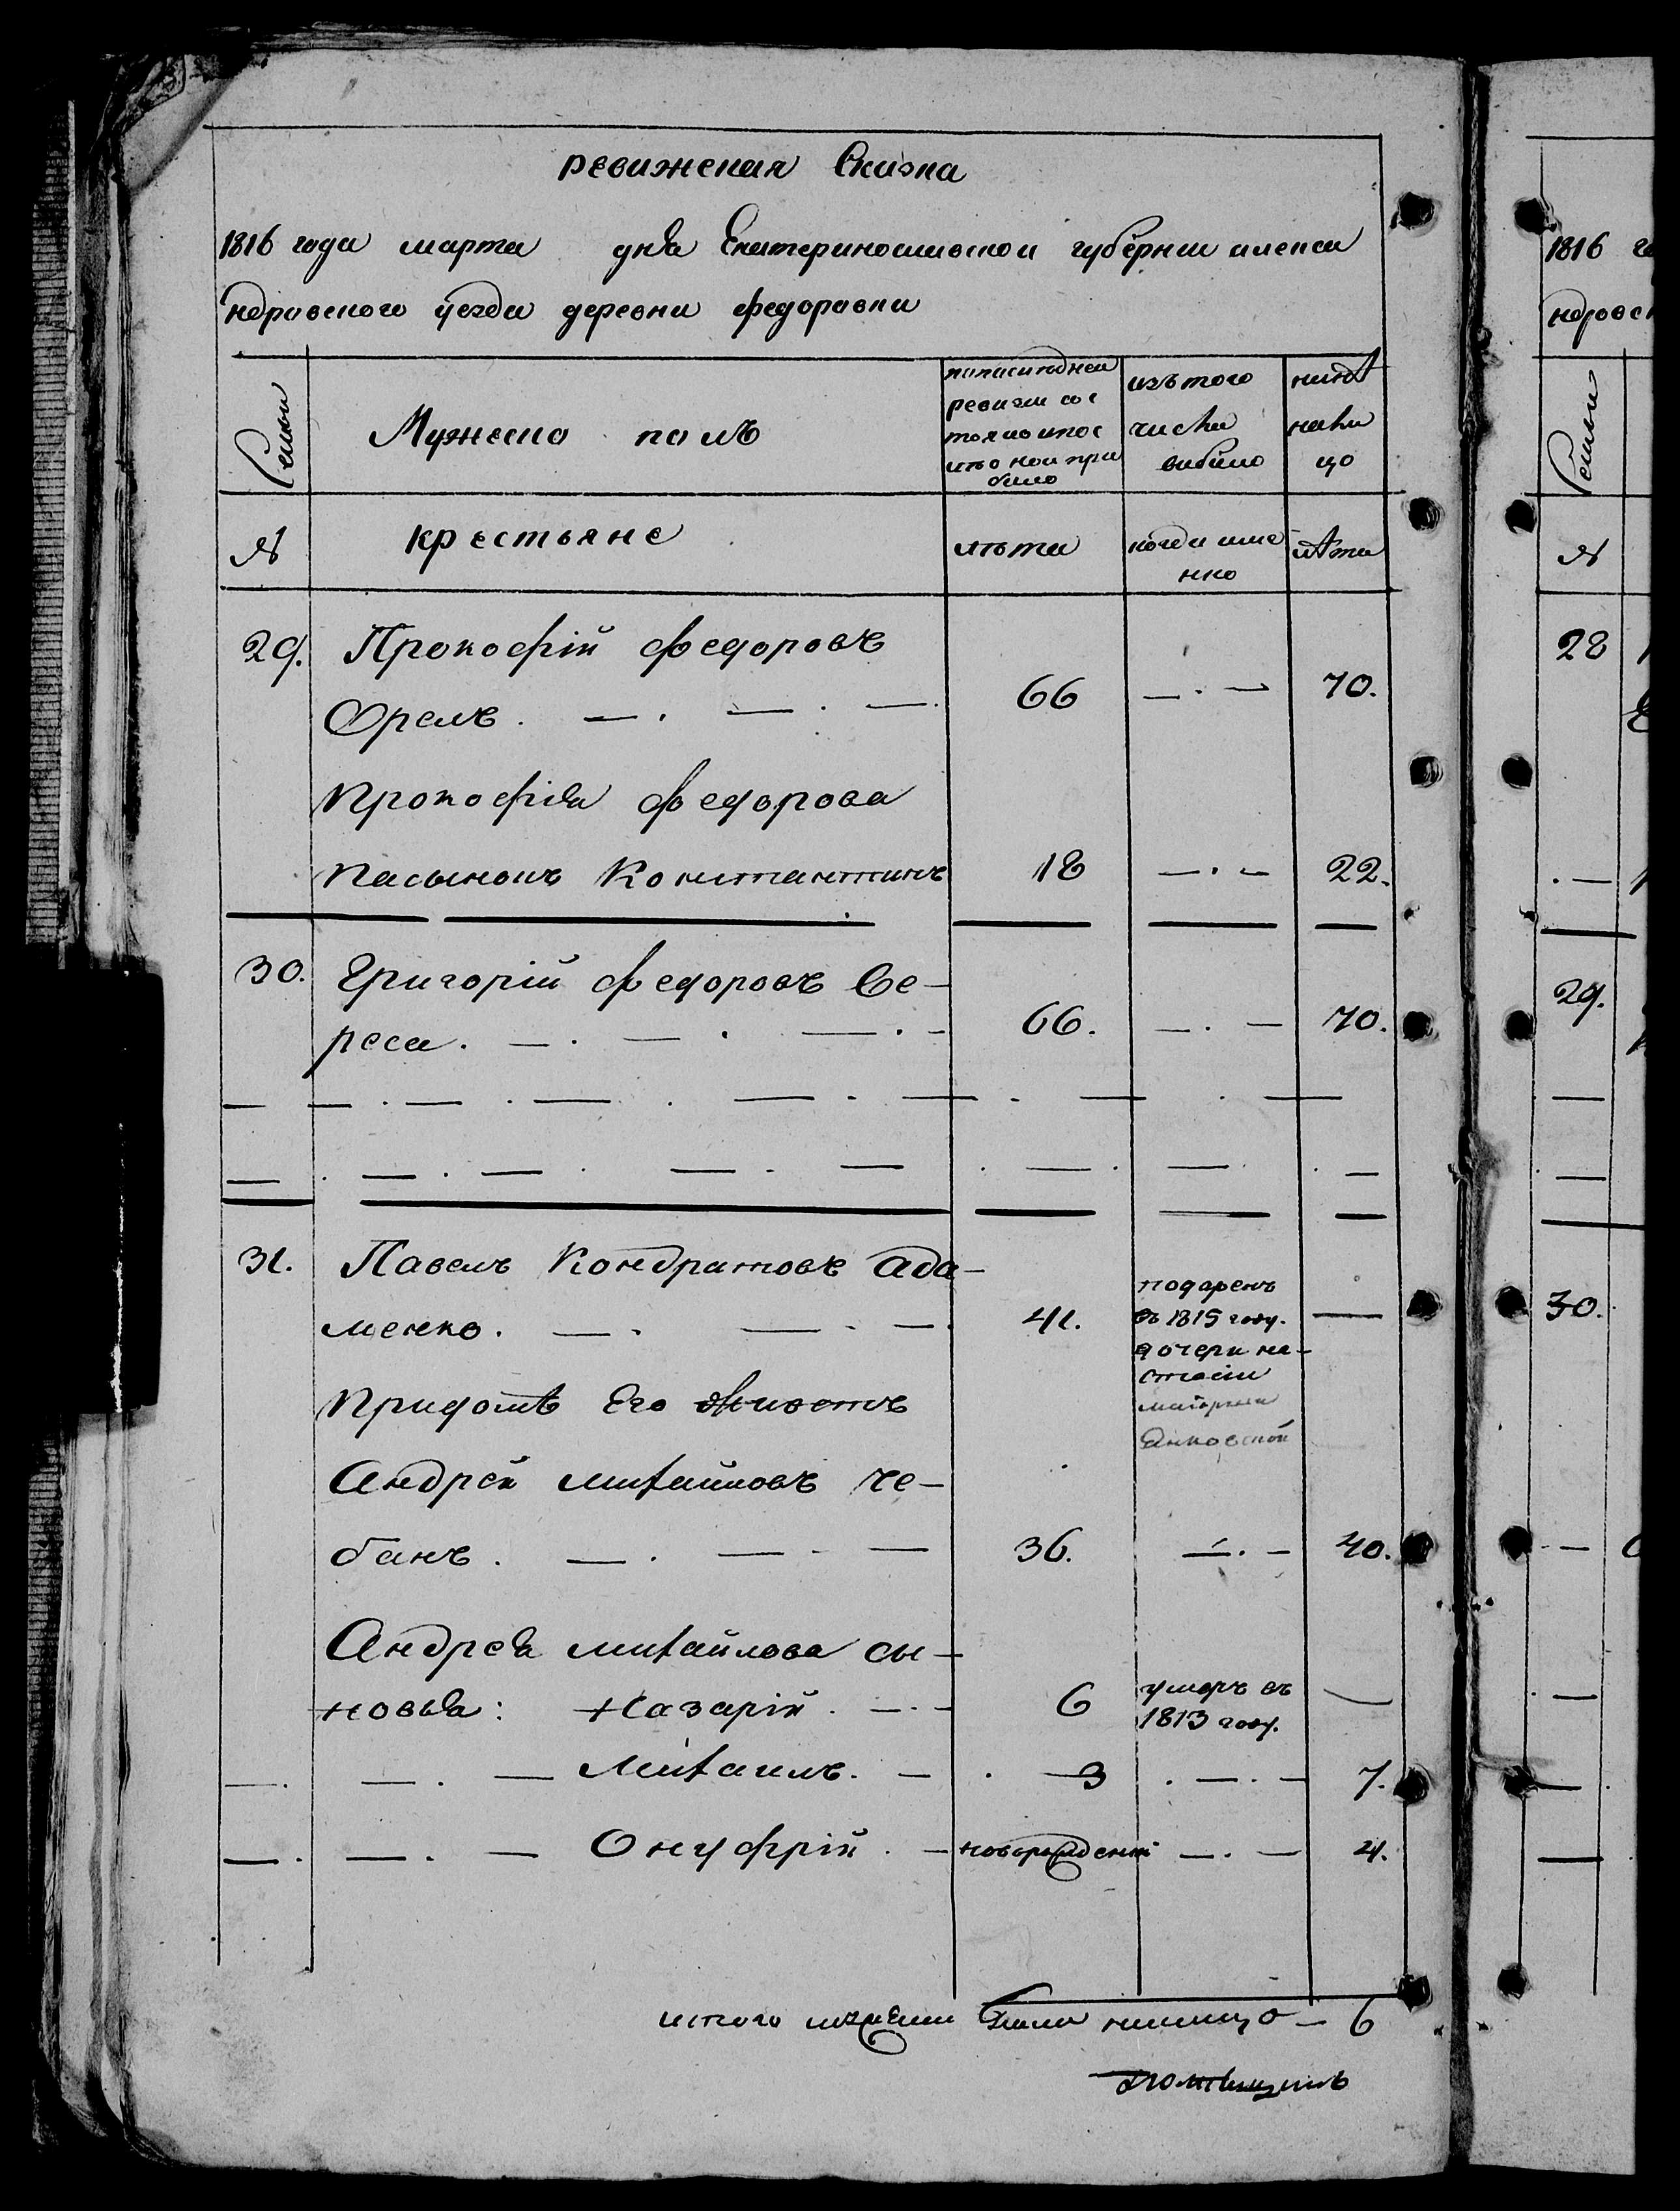 ревижская Сказка
1816 года марта дня Екатеринославской губернии алекса
ндравского уезда деревни федоравки
Семьи
Мужеска полъ
попоследней
ревизии сос
тояло и пос
лѣ онои при
било
изътого
числа
вибило
нинѣ
нали
цо
№
крестьяне
лѣта
когда име
нно
лѣта
29. Прокофій федоровъ
Орелъ. — . — . — 66 — . — 70.
Прокофія федорова
Пасынокъ Константинъ 18 — . — 22.
30. Григорій федоровъ Се-
реса. — . — . — . — 66. — . — 70.
31. Павелъ Кондратовъ Ада-
менко. — . — . — 41. —
подаренъ
въ 1815 году.
дочери на-
стасіи
маіорши
Янковской
Придомѣ Его живетъ
Андрей михайловъ че-
банъ. — . — . — 36. — . — 40.
Андрея михайлова сы-
новья: Назарій. — . — 6 умеръ въ —
1813 году.
— . — . — Михаилъ. — . — 3 . — . — 7.
— . — . — Онуфрій. — новорожденъ — . — 4.
итого мужеска пола налицо — 6
28
29.
30.
1816
ндровск
Семьи
№